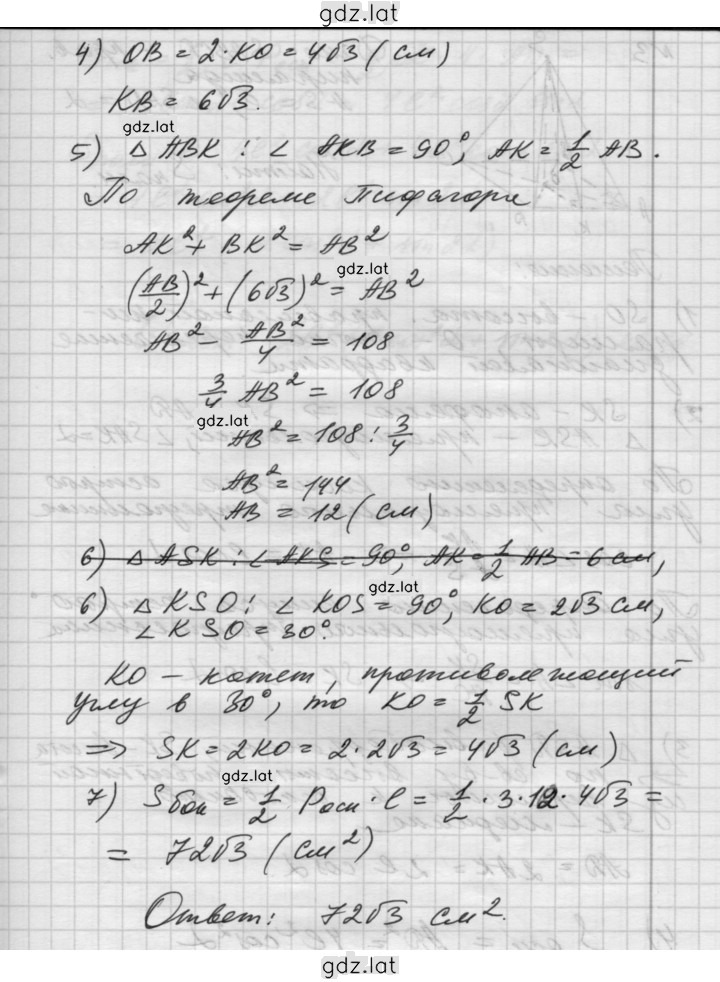 gdz.lat
4) OB = 2·KO = 4√3 (см)
KB = 6√3.
gdz.lat
5) △ ABK : ∠ AKB = 90°, AK = 1/2 AB.
По теореме Пифагора
AK² + BK² = AB²
gdz.lat
(AB/2)² + (6√3)² = AB²
AB² - AB²/4 = 108
3/4 AB² = 108
gdz.lat
AB² = 108 : 3/4
AB² = 144
AB = 12 (см)
6) △ ASK : ∠ AKS = 90°, AK = 1/2 AB = 6 см,
gdz.lat
6) △ KSO : ∠ KOS = 90°, KO = 2√3 см,
∠ KSO = 30°.
KO – катет, противолежащий
углу в 30°, то KO = 1/2 SK
⇒ SK = 2KO = 2·2√3 = 4√3 (см)
gdz.lat
7) Sбок = 1/2 Pосн · l = 1/2 · 3 · 12 · 4√3 =
= 72√3 (см²)
Ответ: 72√3 см².
gdz.lat